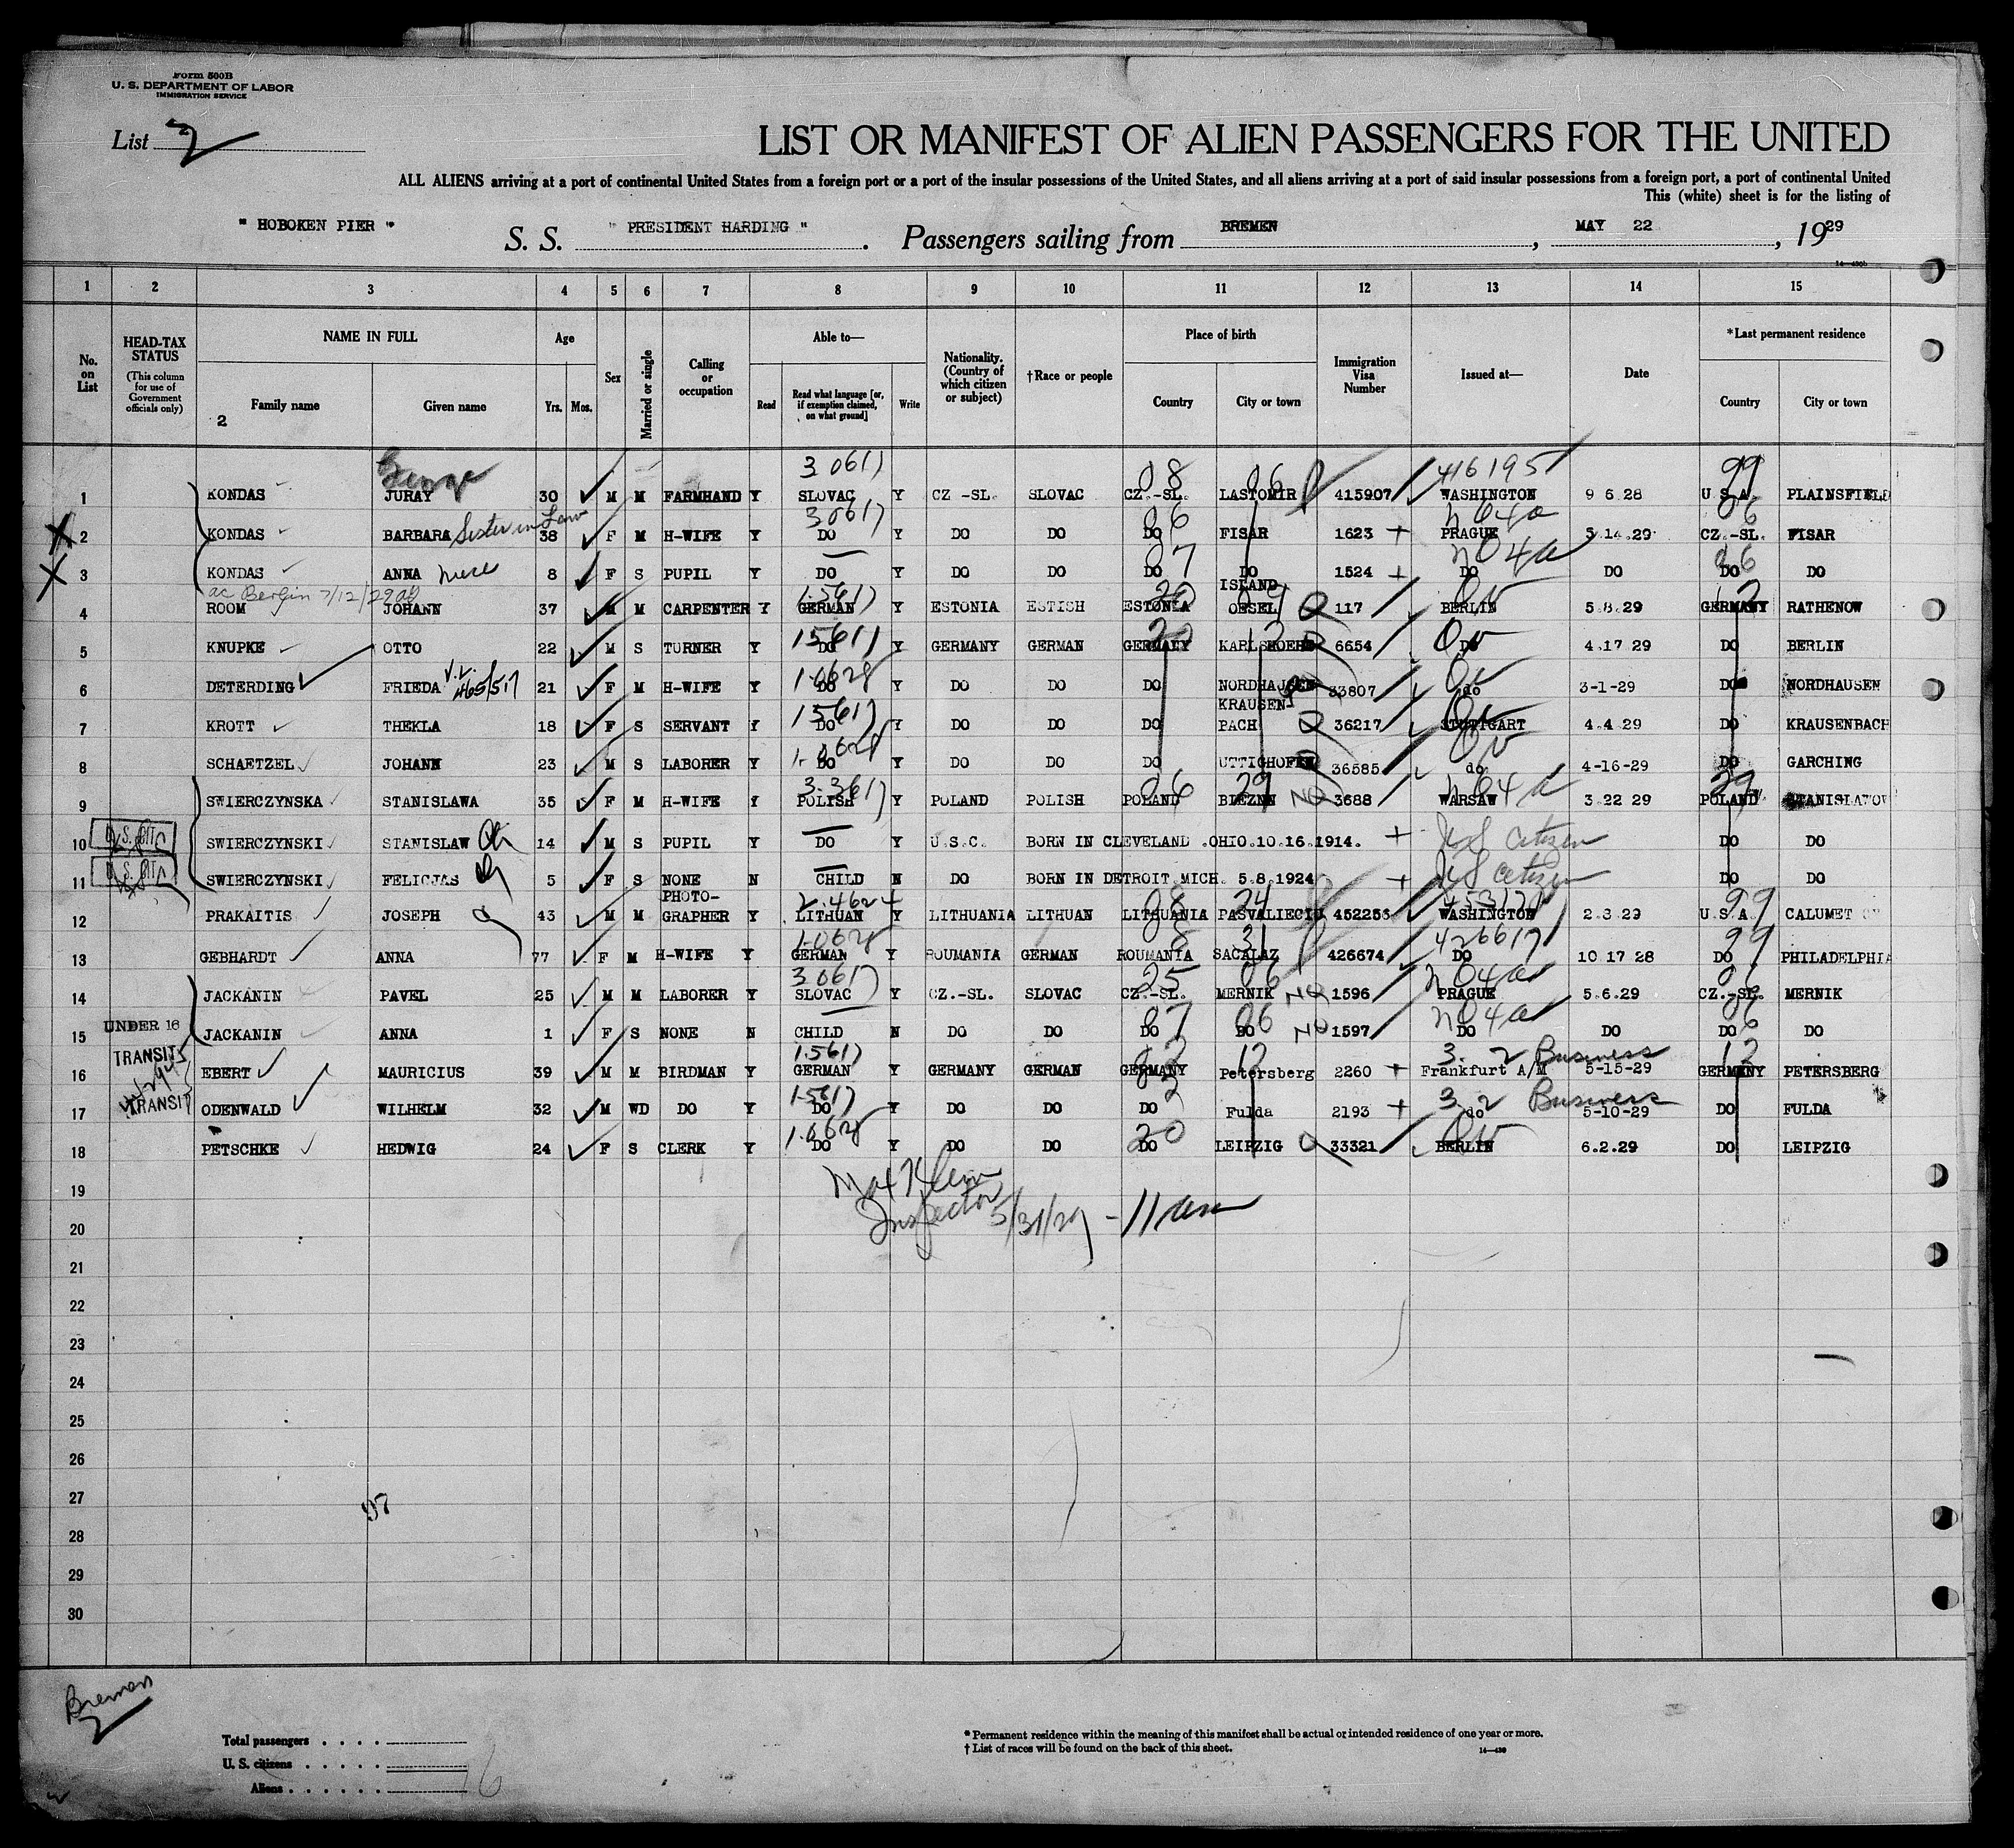 Form 500B
U. S. DEPARTMENT OF LABOR
IMMIGRATION SERVICE
List 2
LIST OR MANIFEST OF ALIEN PASSENGERS FOR THE UNITED
ALL ALIENS arriving at a port of continental United States from a foreign port or a port of the insular possessions of the United States, and all aliens arriving at a port of said insular possessions from a foreign port, a port of continental United
This (white) sheet is for the listing of
" HOBOKEN PIER " S. S. " PRESIDENT HARDING " . Passengers sailing from BREMEN , MAY 22 , 1929
1 2 3 4 5 6 7 8 9 10 11 12 13 14 15
No. on List
HEAD-TAX STATUS
(This column for use of Government officials only)
NAME IN FULL
Family name Given name
2
Age
Yrs. Mos.
Sex
Married or single
Calling or occupation
Able to—
Read Read what language [or, if exemption claimed, on what ground] Write
Nationality. (Country of which citizen or subject)
†Race or people
Place of birth
Country City or town
Immigration Visa Number
Issued at—
Date
*Last permanent residence
Country City or town
George 3 0617 08 06 416195 99
1 KONDAS JURAY 30 M M FARMHAND Y SLOVAC Y CZ -SL. SLOVAC CZ.-SL. LASTOMIR 415907 WASHINGTON 9 6.28 U.S.A. PLAINSFIELD
Sister in Law 30617 06
2 KONDAS BARBARA 38 F M H-WIFE Y DO Y DO DO DO FISAR 1623 PRAGUE 5.14.29 CZ.-SL. FISAR
3 KONDAS ANNA niece 8 F S PUPIL Y DO Y DO DO DO DO 1524 DO DO DO DO
ac Berlin 7/12/29 15617 ISLAND
4 ROOM JOHANN 37 M M CARPENTER Y GERMAN Y ESTONIA ESTISH ESTONIA OESEL 117 BERLIN 5.8.29 GERMANY RATHENOW
15617 20
5 KNUPKE OTTO 22 M S TURNER Y DO Y GERMANY GERMAN GERMANY 6654 DO 4.17 29 DO BERLIN
V.L. 465/517 1.0628
6 DETERDING FRIEDA 21 F M H-WIFE Y DO Y DO DO DO NORDHAUSEN 33807 do 3-1-29 DO NORDHAUSEN
15617 KRAUSEN
7 KROTT THEKLA 18 F S SERVANT Y DO Y DO DO DO PACH 36217 STUTTGART 4.4.29 DO KRAUSENBACH
1.0628
8 SCHAETZEL JOHANN 23 M S LABORER Y DO Y DO DO DO UTTIGHOFEN 36585 do 4-16-29 DO GARCHING
3.3617 06 29 NQ 29
9 SWIERCZYNSKA STANISLAWA 35 F M H-WIFE Y POLISH Y POLAND POLISH POLAND 3688 WARSAW 3.22 29 POLAND
10 SWIERCZYNSKI STANISLAW 14 M S PUPIL Y DO Y U.S.C. BORN IN CLEVELAND .OHIO.10.16.1914. US Citizen DO DO
11 SWIERCZYNSKI FELICJAS 5 F S NONE N CHILD N DO BORN IN DETROIT.MICH. 5.8.1924 US Citizen DO DO
PHOTO- 2.4624 08 24 99
12 PRAKAITIS JOSEPH 43 M M GRAPHER Y LITHUAN Y LITHUANIA LITHUAN LITHUANIA 452256 WASHINGTON 2.3.29 U.S.A. CALUMET
1.0628 8 31 426617 99
13 GEBHARDT ANNA 77 F M H-WIFE Y GERMAN Y ROUMANIA GERMAN ROUMANIA SACALAZ 426674 DO 10 17 28 DO PHILADELPHIA
3 0617 25 06 NQ 06
14 JACKANIN PAVEL 25 M M LABORER Y SLOVAC Y CZ.-SL. SLOVAC CZ.-SL. MERNIK 1596 PRAGUE 5.6.29 CZ.-SL. MERNIK
UNDER 16 07 06 NQ
15 JACKANIN ANNA 1 F S NONE N CHILD N DO DO DO DO 1597 DO DO DO DO
TRANSIT 1.5617 12 3. 2 Business 12
16 EBERT MAURICIUS 39 M M BIRDMAN Y GERMAN Y GERMANY GERMAN GERMANY Petersberg 2260 Frankfurt A/M 5-15-29 GERMANY PETERSBERG
TRANSIT 1.5617 2 3 2 Business
17 ODENWALD WILHELM 32 M WD DO Y DO Y DO DO DO Fulda 2193 do 5-10-29 DO FULDA
1.0628 20
18 PETSCHKE HEDWIG 24 F S CLERK Y DO Y DO DO DO LEIPZIG 33321 BERLIN 6.2.29 DO LEIPZIG
19
Max Klein
Inspector 5/31/29 - 11 am
20
21
22
23
24
25
26
27
28
29
30
Bremen
2
Total passengers . . . .
U. S. citizens . . . . .
Aliens . . . . . . 16
* Permanent residence within the meaning of this manifest shall be actual or intended residence of one year or more.
† List of races will be found on the back of this sheet.